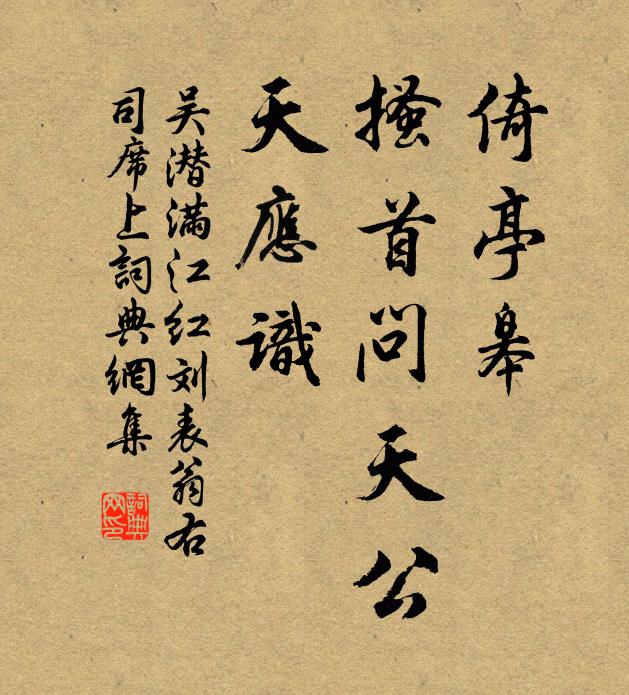 倚亭皋
搔首问天公
天應識
吴潜满江红刘表翁右
司席上詞典網集
詞典网印